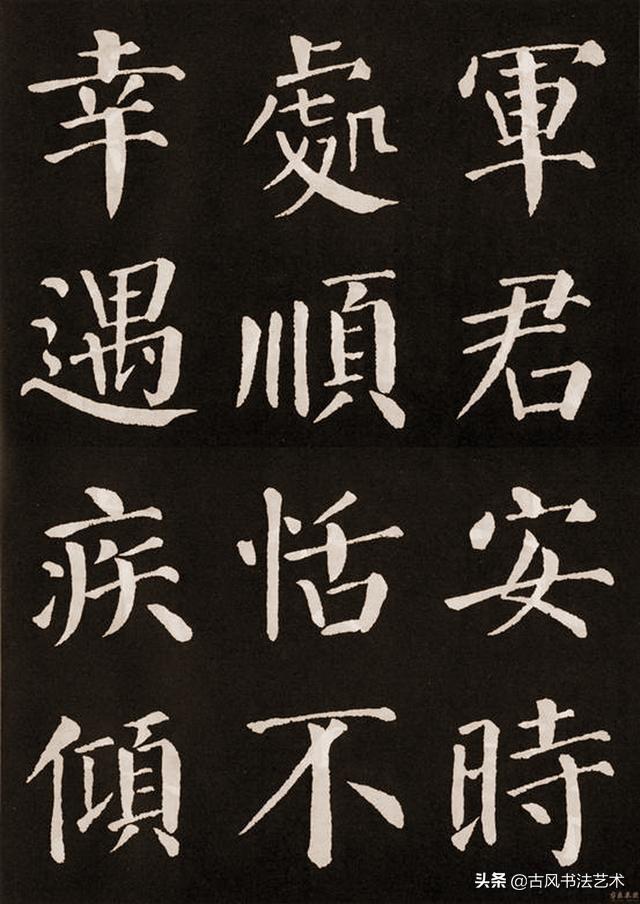 軍君安時
處順恬不
幸遇疾傾
头条 @古风书法艺术